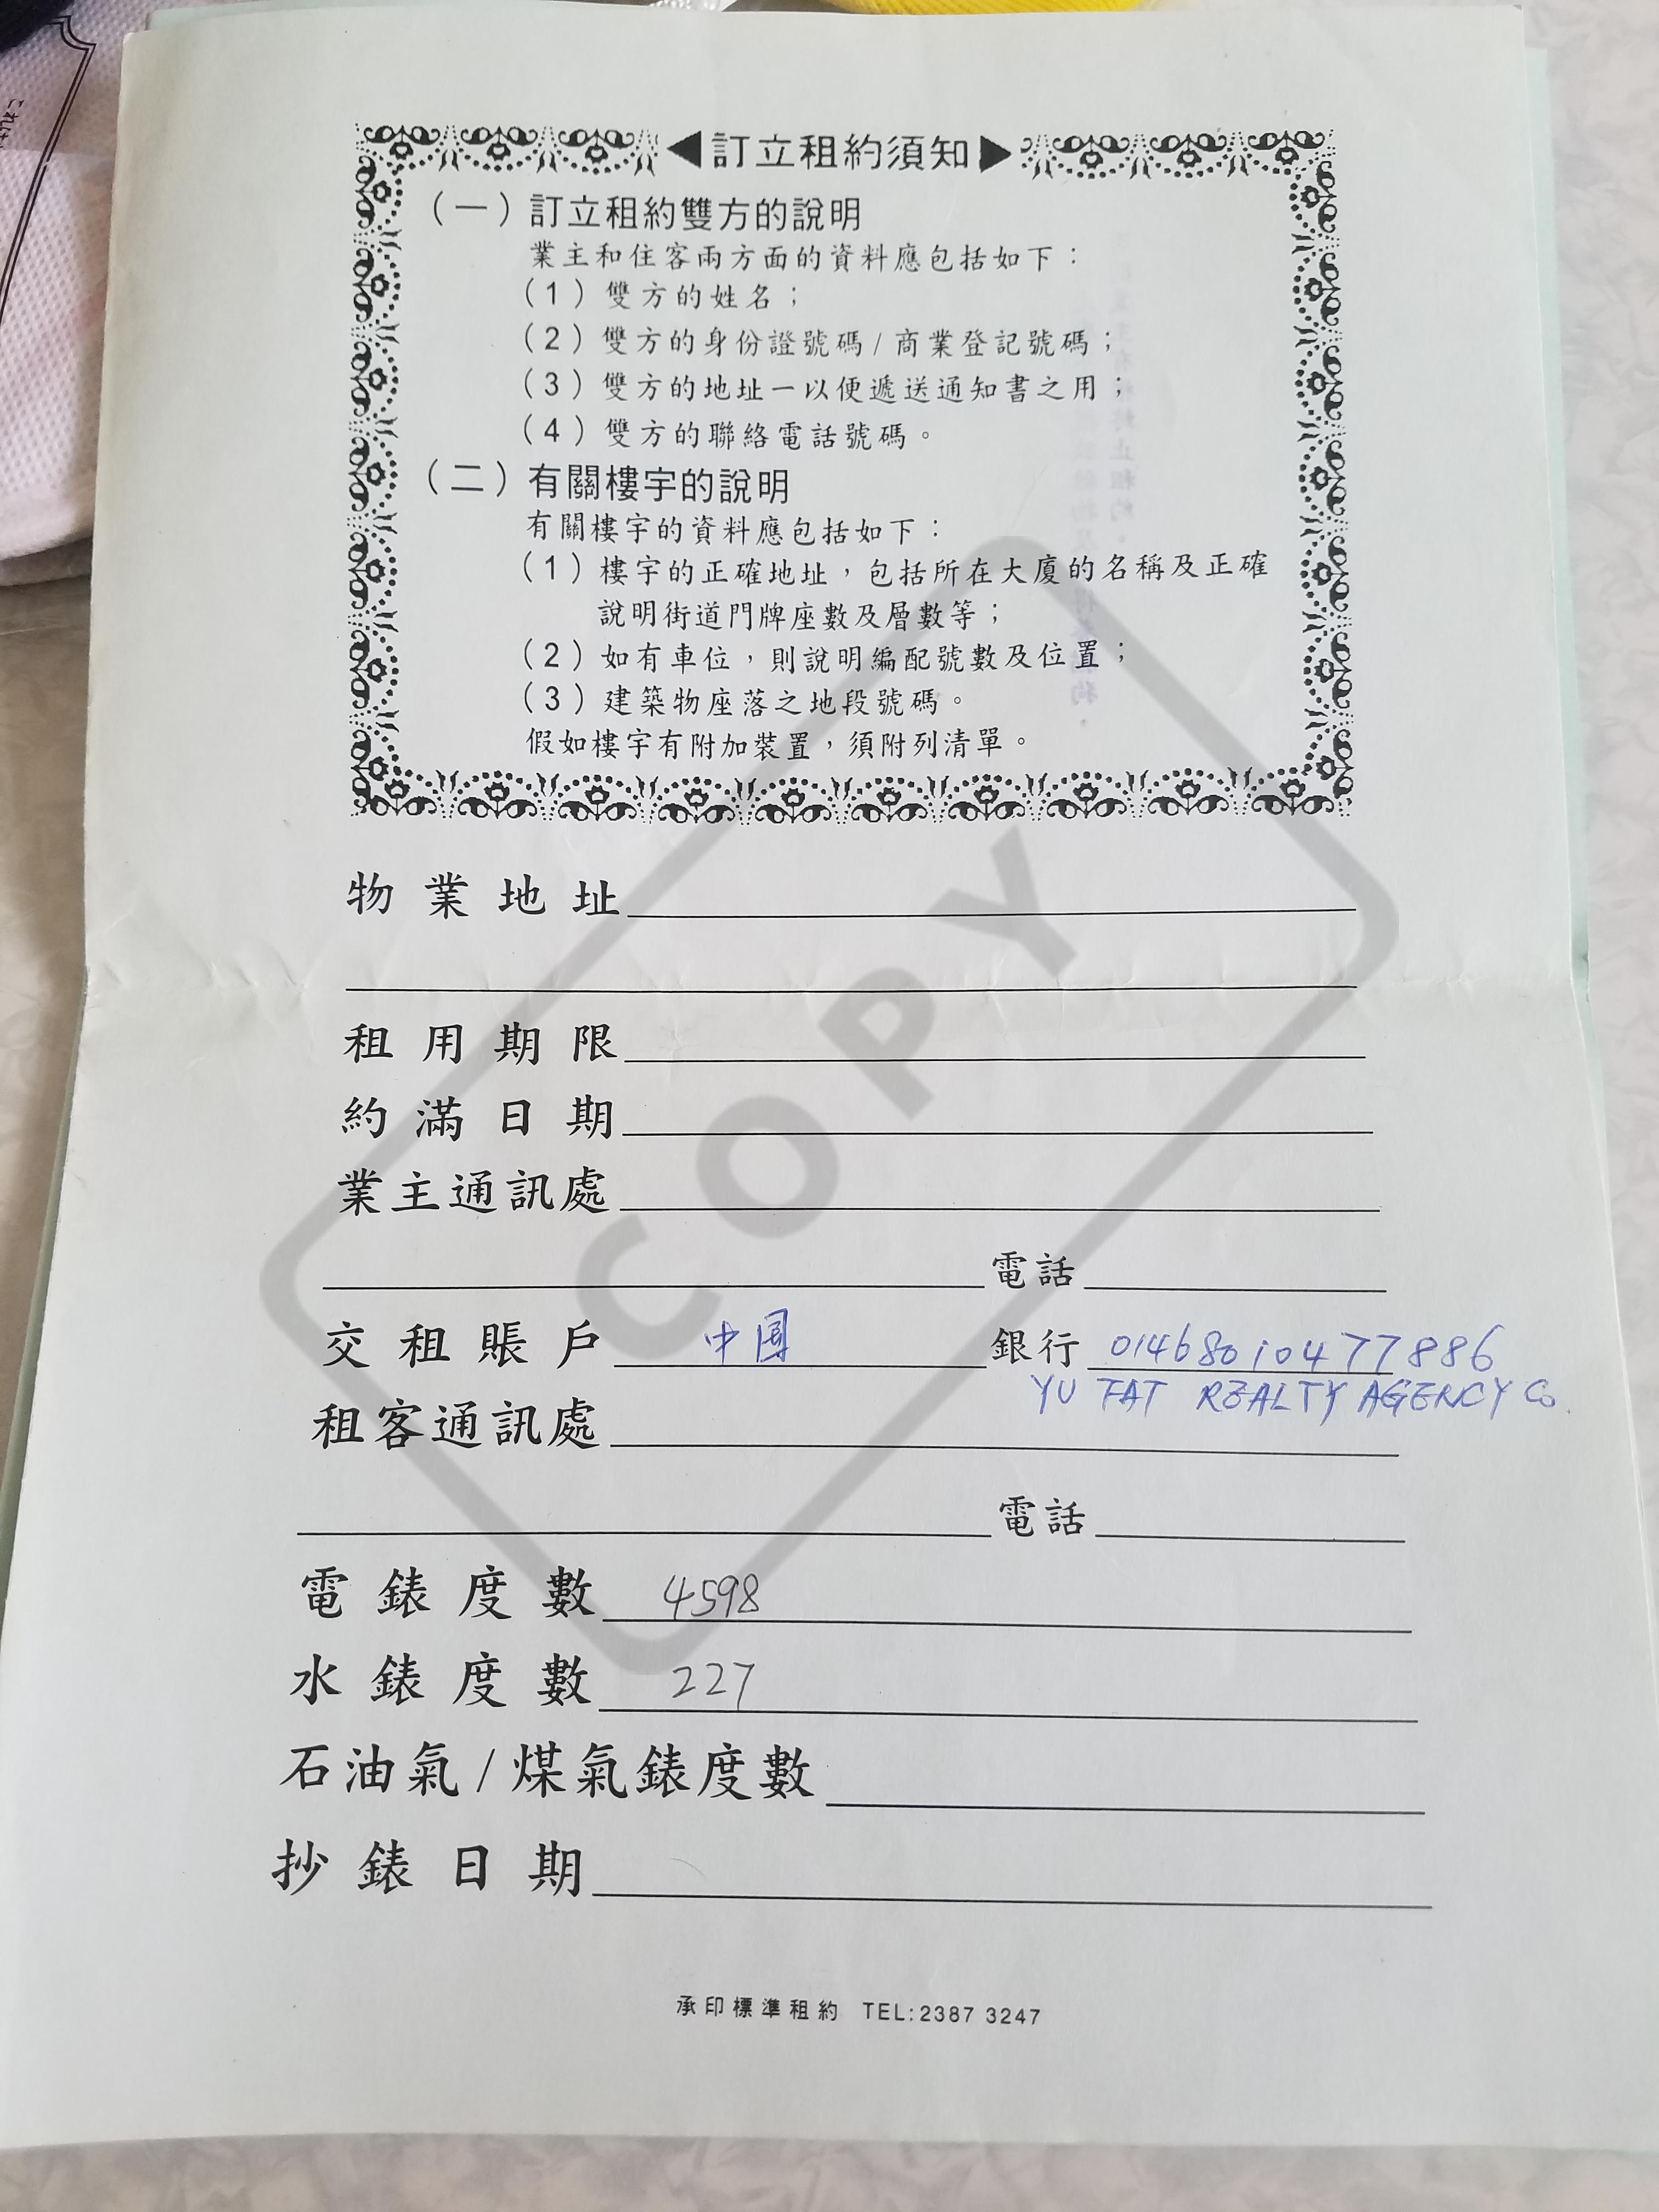 ◀訂立租約須知▶
（一）訂立租約雙方的說明
業主和住客兩方面的資料應包括如下：
（1）雙方的姓名；
（2）雙方的身份證號碼/商業登記號碼；
（3）雙方的地址一以便遞送通知書之用；
（4）雙方的聯絡電話號碼。
（二）有關樓宇的說明
有關樓宇的資料應包括如下：
（1）樓宇的正確地址，包括所在大廈的名稱及正確
說明街道門牌座數及層數等；
（2）如有車位，則說明編配號數及位置；
（3）建築物座落之地段號碼。
假如樓宇有附加裝置，須附列清單。
COPY
物業地址
租用期限
約滿日期
業主通訊處
電話
交租賬戶 中國 銀行 01468010477886
YU FAT REALTY AGENCY Co.
租客通訊處
電話
電錶度數 4598
水錶度數 227
石油氣/煤氣錶度數
抄錶日期
承印標準租約 TEL:2387 3247